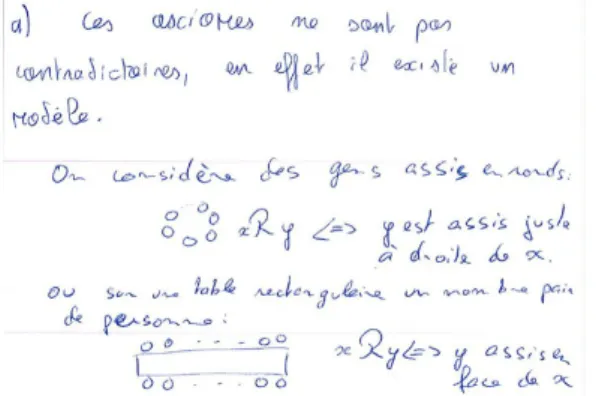 a) Ces asciomes ne sont pas
contradictoires, en effet il existe un
modèle.
On considère des gens assis en ronds.
xRy <=> y est assis juste
à droite de x.
ou sur une table rectangulaire un nombre pair
de personne :
xRy <=> y assis en
face de x